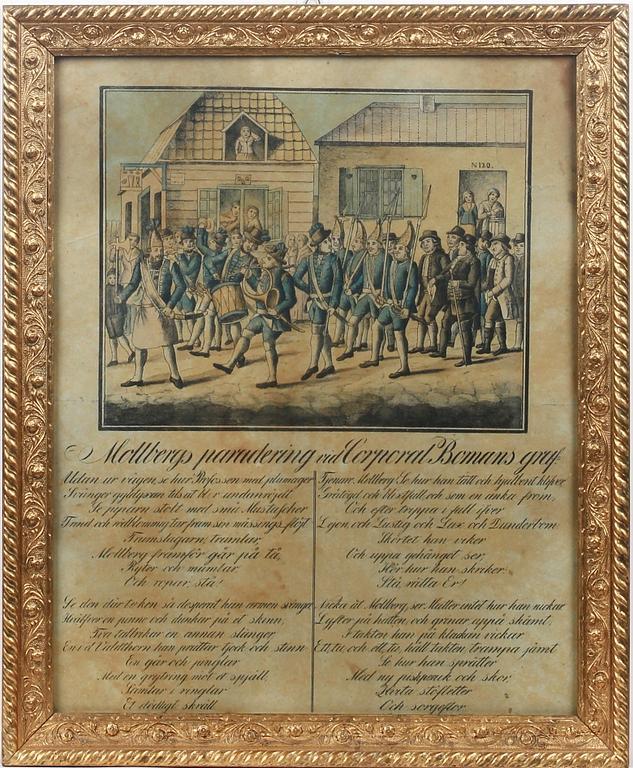 N 120.
Mollbergs paradering vid Corporal Bomans graf.
Undan ur vägen se hur Profossen med plumager
Svänger gyldgsann tils at bli r undanröjdt
Se piparn stolt med små Mustascher
Trind och rödblommig tar fram sin mässings flöjt
Trumslagarn, trumlar,
Mollberg framför går på tå,
Ryter och mumlar
Och ropar, stå!
Se den där tocken så desperat han armen svänger
Hvälfver en pinne och dunkar på et skinn,
Två tallrikar en annan slänger
En i et Valdthorn han pruttar tjock och stinn
En går och pinglar
Med en grytring mot et spjäll,
Skimlar i ringlar
Et dödligt skräll
Tjenar Mollberg Se hur han tätt och hjulbent kliver
Gråtögd och blödfull och som en anka from,
Och efter troppa i full ifver
Logen och Lustig och Lax och Dunderbom
Skörtet han viker
Och uppa gehänget ser,
Hör hur han skriker
Stå, rätta Er!
Vicka üt Mollberg, ser Mutter intet hur han nickar
Lyfter på hatten, och grinar uppå skämt,
I takten han på klacken vickar
Ett, tu, och ett, tu, håll takten trampa jämt
Se hur han sprätter
Med ny piskperuk och skor,
Hvita stöfletter
Och sorgflor.